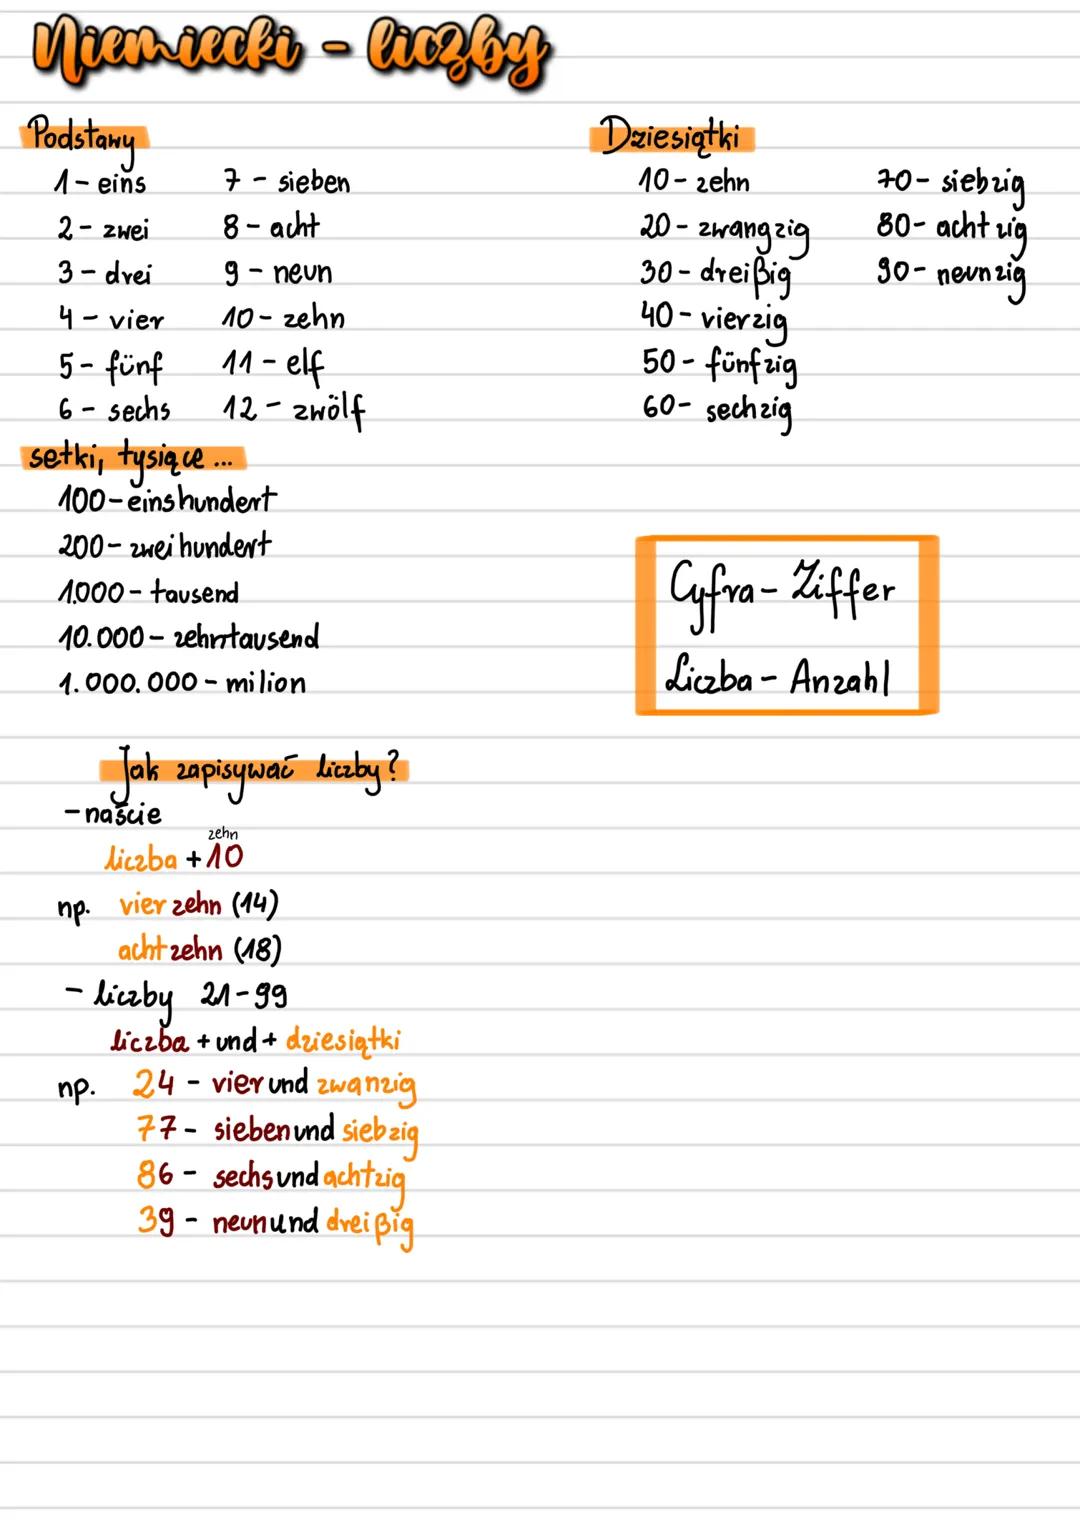 Niemiecki - liczby
Podstawy
1 - eins
2 - zwei
3 - drei
4 - vier
5 - fünf
6 - sechs
7 - sieben
8 - acht
9 - neun
10 - zehn
11 - elf
12 - zwölf
Dziesiątki
10 - zehn
20 - zwangzig
30 - dreißig
40 - vierzig
50 - fünfzig
60 - sechzig
70 - siebzig
80 - achtzig
90 - neunzig
setki, tysiące ...
100 - einshundert
200 - zweihundert
1.000 - tausend
10.000 - zehntausend
1.000.000 - milion
Cyfra - Ziffer
Liczba - Anzahl
Jak zapisywać liczby?
- naście
zehn
liczba + 10
np. vierzehn (14)
achtzehn (18)
- liczby 21-99
liczba + und + dziesiątki
np. 24 - vierundzwanzig
77 - siebenundsiebzig
86 - sechsundachtzig
39 - neununddreißig